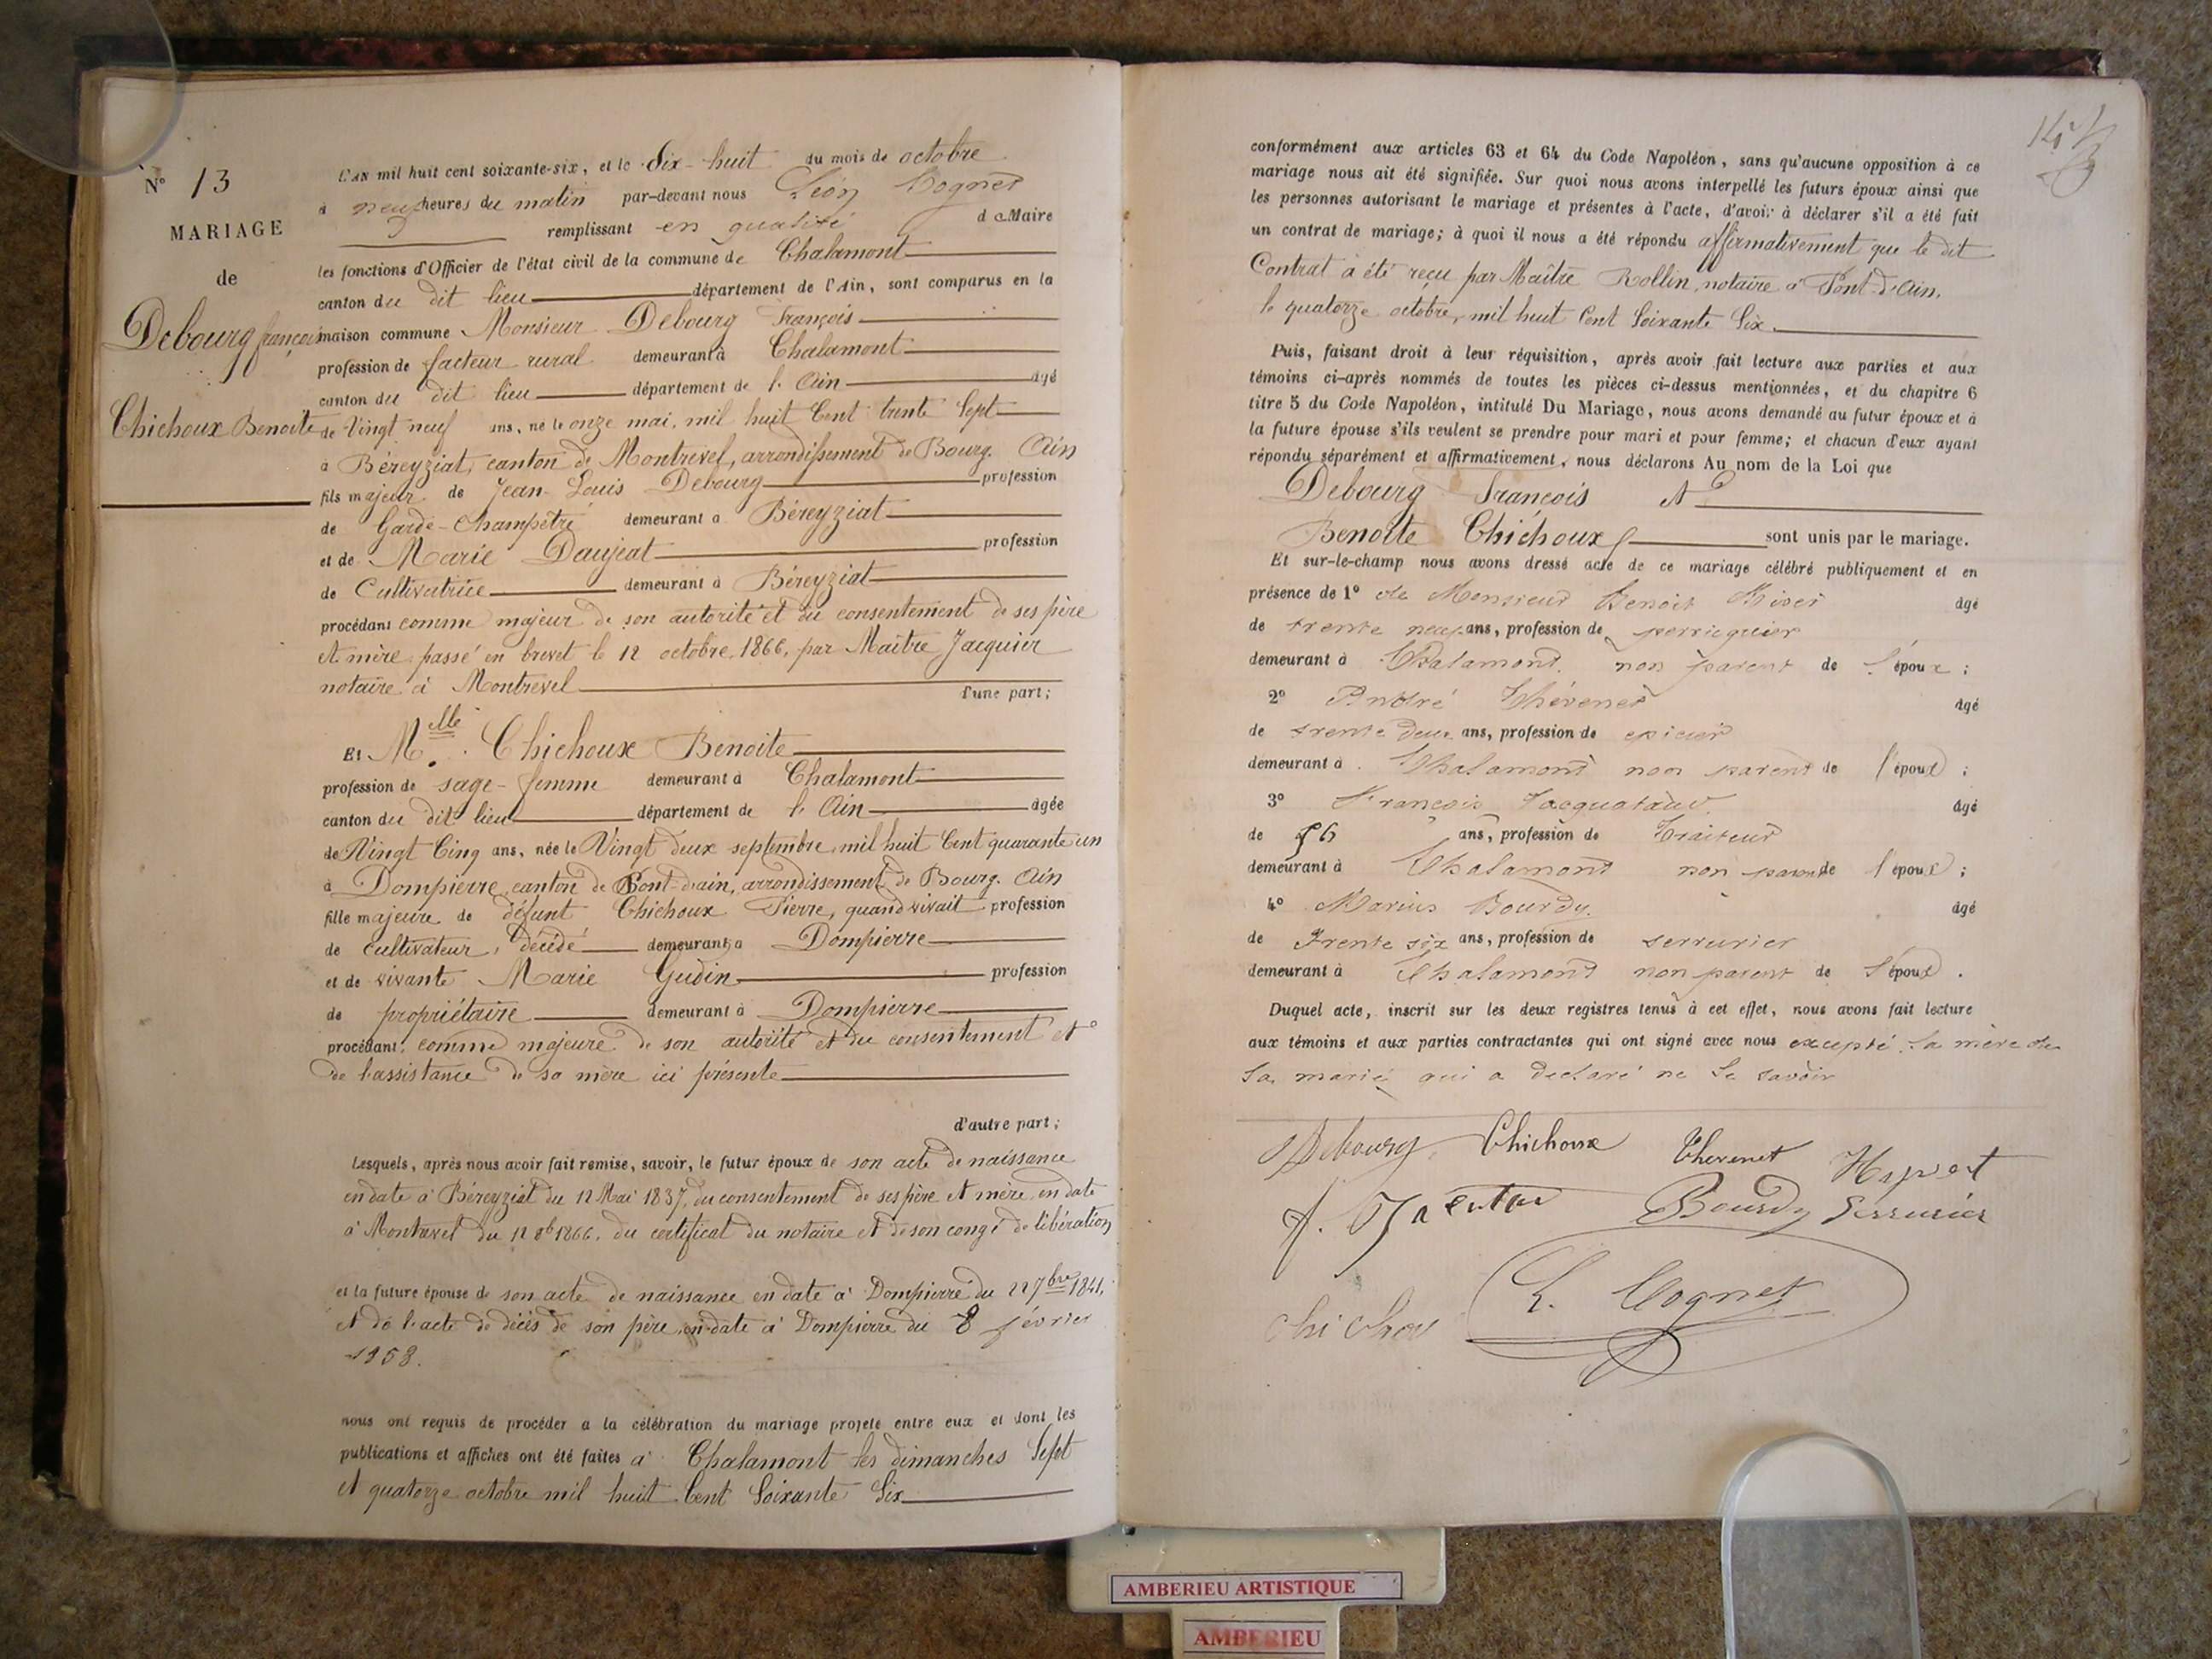 N° 13
MARIAGE
de
Debourg françois
Chichoux Benoite
L'AN mil huit cent soixante-six, et le dix-huit du mois de octobre
à neuf heures du matin par-devant nous Léon Cognet
remplissant en qualité de Maire
les fonctions d'Officier de l'état civil de la commune de Chalamont
canton du dit lieu département de l'Ain, sont comparus en la
maison commune Monsieur Debourg François
profession de facteur rural demeurant à Chalamont
canton du dit lieu département de l'Ain âgé
de Vingt neuf ans, né le onze mai, mil huit Cent trente Sept
à Béreyziat, canton de Montrevel, arrondissement de Bourg. Ain
fils majeur de Jean-Louis Debourg profession
de Garde-Champêtre demeurant à Béreyziat
et de Marie Daujeat profession
de Cultivatrice demeurant à Béreyziat
procédant comme majeur de son autorité et du consentement de ses père
et mère passé en brevet le 12 octobre, 1866, par Maître Jacquier
notaire à Montrevel d'une part;
Et Melle Chichoux Benoite
profession de sage-femme demeurant à Chalamont
canton du dit lieu département de l'Ain âgée
de Vingt Cinq ans, née le Vingt deux septembre, mil huit Cent quarante un
à Dompierre, canton de Pont-d'ain, arrondissement de Bourg. Ain
fille majeure de défunt Chichoux Pierre, quand vivait profession
de cultivateur, décédé demeurant à Dompierre
et de vivante Marie Gudin profession
de propriétaire demeurant à Dompierre
procédant comme majeure de son autorité et du consentement et
de l'assistance de sa mère ici présente
d'autre part;
Lesquels, après nous avoir fait remise, savoir, le futur époux de son acte de naissance
en date à Béreyziat du 12 Mai 1837, du consentement de ses père et mère, en date
à Montrevel du 12 8b 1866, du certificat du notaire et de son congé de libération
et la future épouse de son acte de naissance en date à Dompierre du 22 7bre 1841,
et de l'acte de décès de son père, en date à Dompierre du 8 février
1858.
nous ont requis de procéder à la célébration du mariage projeté entre eux et dont les
publications et affiches ont été faites à Chalamont les dimanches Sept
et quatorze octobre mil huit Cent Soixante Six
conformément aux articles 63 et 64 du Code Napoléon, sans qu'aucune opposition à ce
mariage nous ait été signifiée. Sur quoi nous avons interpellé les futurs époux ainsi que
les personnes autorisant le mariage et présentes à l'acte, d'avoir à déclarer s'il a été fait
un contrat de mariage; à quoi il nous a été répondu affirmativement que le dit
Contrat a été reçu par Maître Rollin, notaire à Pont-d'Ain,
le quatorze octobre, mil huit Cent Soixante Six.
Puis, faisant droit à leur réquisition, après avoir fait lecture aux parties et aux
témoins ci-après nommés de toutes les pièces ci-dessus mentionnées, et du chapitre 6
titre 5 du Code Napoléon, intitulé Du Mariage, nous avons demandé au futur époux et à
la future épouse s'ils veulent se prendre pour mari et pour femme; et chacun d'eux ayant
répondu séparément et affirmativement, nous déclarons Au nom de la Loi que
Debourg François et
Benoîte Chichoux sont unis par le mariage.
Et sur-le-champ nous avons dressé acte de ce mariage célébré publiquement et en
présence de 1° de Monsieur Benoit âgé
de trente neuf ans, profession de perruquier
demeurant à Chalamont, non parent de l'époux;
2° André Thévenet âgé
de trente deux ans, profession de epicier
demeurant à Chalamont non parent de l'époux;
3° François âgé
de 56 ans, profession de Traiteur
demeurant à Chalamont non parent de l'époux;
4° Marius Bourdy. âgé
de Trente six ans, profession de serrurier
demeurant à Chalamont non parent de l'époux.
Duquel acte, inscrit sur les deux registres tenus à cet effet, nous avons fait lecture
aux témoins et aux parties contractantes qui ont signé avec nous excepté la mère de
la mariée qui a déclaré ne le savoir
Debourg Chichoux Thevenet
Bourdy Serrurier
L. Cognet
AMBERIEU ARTISTIQUE
AMBERIEU